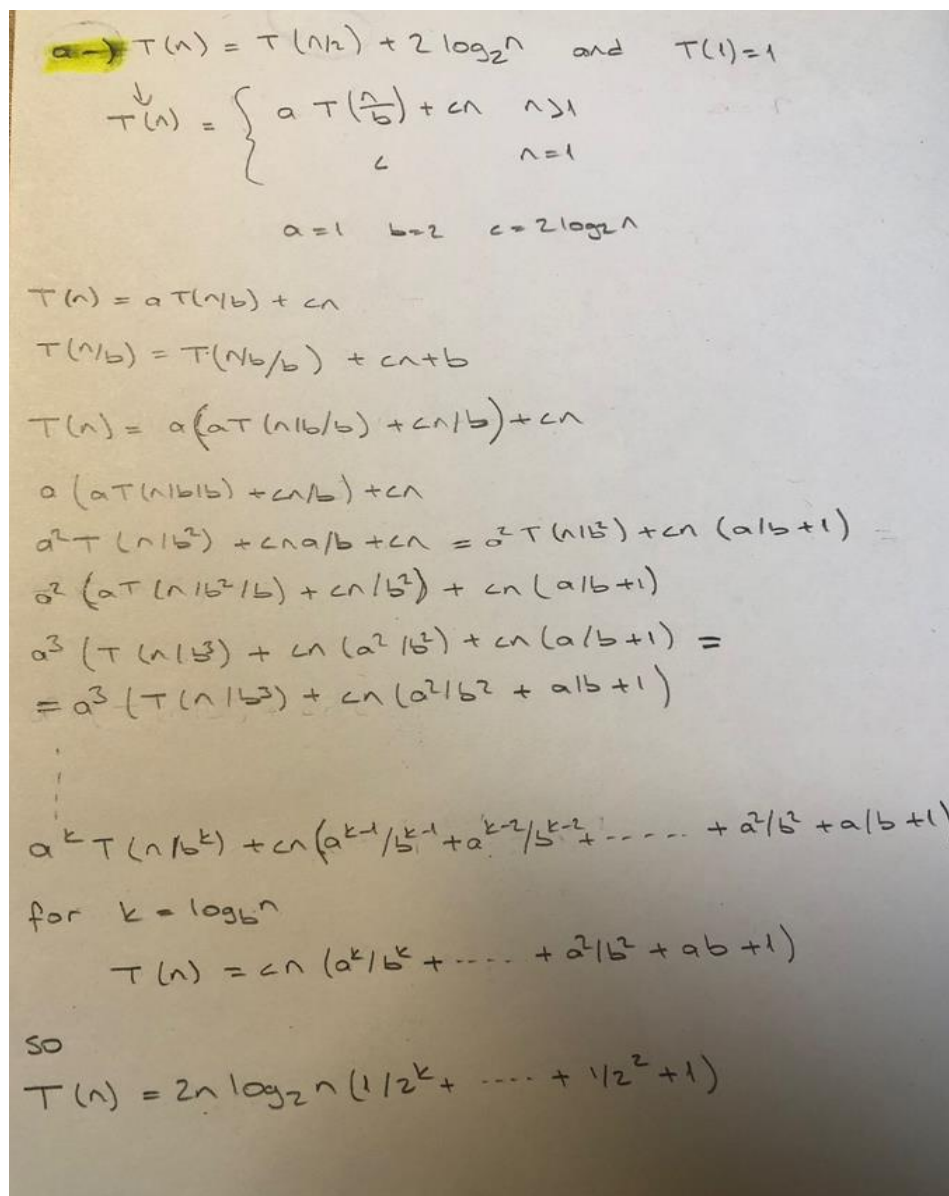 a → T(n) = T(n/2) + 2 log₂n and T(1)=1
↓
T(n) = { a T(n/b) + cn n>1
c n=1
a=1 b=2 c=2log₂n
T(n) = a T(n/b) + cn
T(n/b) = T(n/b/b) + cn+b
T(n) = a(aT(n/b/b) + cn/b) + cn
a (aT(n/b/b) + cn/b) + cn
a²T(n/b²) + cna/b + cn = a²T(n/b²) + cn (a/b+1)
a² (aT(n/b²/b) + cn/b²) + cn (a/b+1)
a³ (T(n/b³) + cn (a²/b²) + cn (a/b+1) =
= a³ (T(n/b³) + cn (a²/b² + a/b +1)
aᵏT(n/bᵏ) + cn(aᵏ⁻¹/bᵏ⁻¹ + aᵏ⁻²/bᵏ⁻² + ..... + a²/b² + a/b +1)
for k = log_b n
T(n) = cn (aᵏ/bᵏ + .... + a²/b² + ab +1)
so
T(n) = 2n log₂n (1/2ᵏ + .... + 1/2² +1)